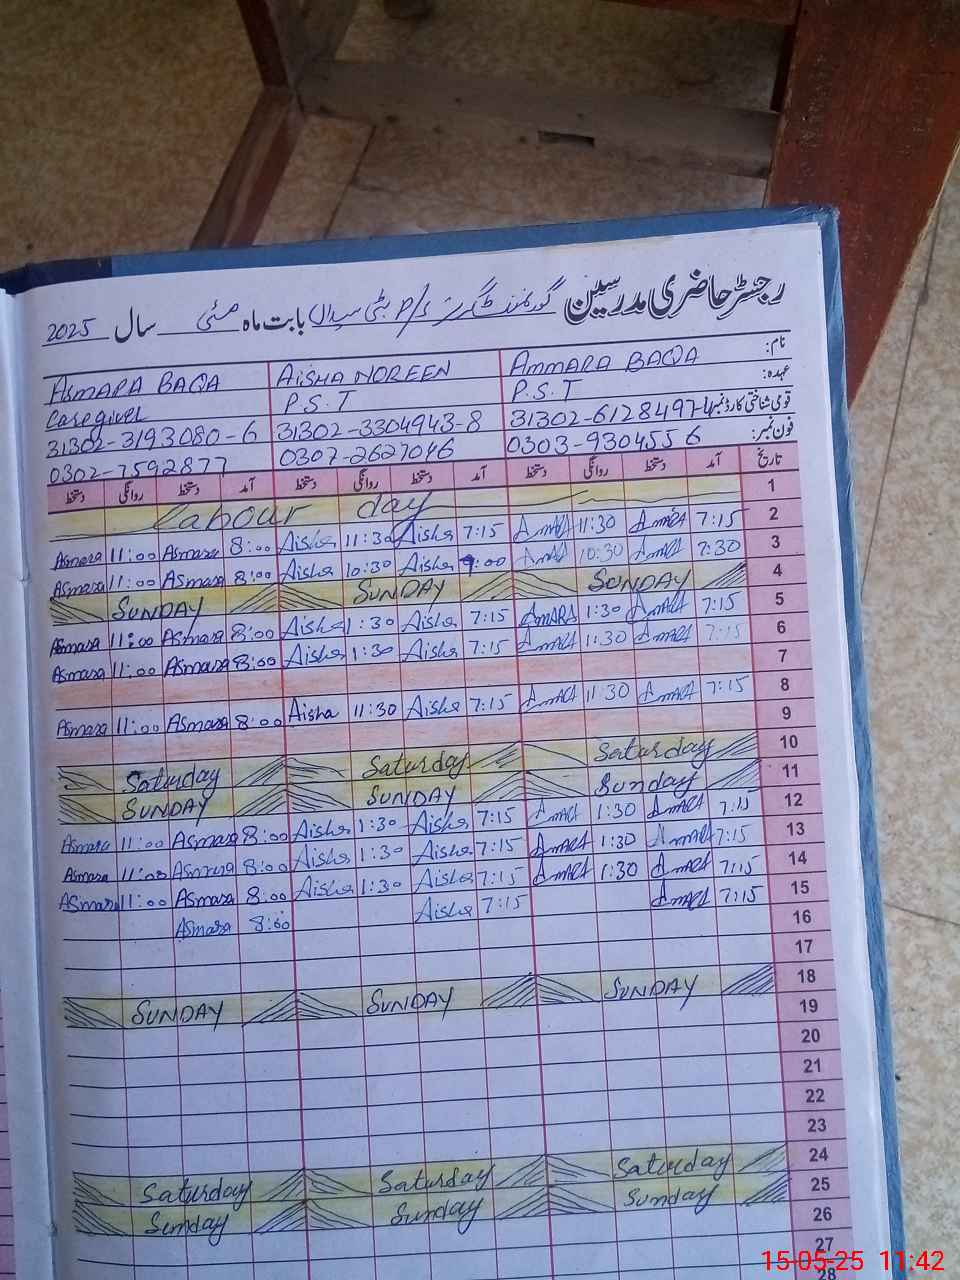 رجسٹر حاضری مدرسین گورنمنٹ گرلز P/S بٹی سیداں بابت ماہ مئی سال 2025
نام: AMMARA BAQA AISHA NOREEN ASMARA BAQA
عہدہ: P.S.T P.S.T Caregiver
قومی شناختی کارڈ نمبر 31302-6128497-4 31302-3304943-8 31302-3193080-6
فون نمبر: 0303-9304556 0307-2627046 0302-7592877
تاریخ آمد دستخط روانگی دستخط آمد دستخط روانگی دستخط آمد دستخط روانگی دستخط
1 Labour day
2 7:15 Amara 11:30 Amara 7:15 Aisha 11:30 Aisha 8:00 Asmara 11:00 Asmara
3 7:30 Amara 10:30 Amara 7:00 Aisha 10:30 Aisha 8:00 Asmara 11:00 Asmara
4 SUNDAY SUNDAY SUNDAY
5 7:15 Amara 1:30 Amara 7:15 Aisha 1:30 Aisha 8:00 Asmara 11:00 Asmara
6 7:15 Amara 11:30 Amara 7:15 Aisha 1:30 Aisha 8:00 Asmara 11:00 Asmara
7
8 7:15 Amara 11:30 Amara 7:15 Aisha 11:30 Aisha 8:00 Asmara 11:00 Asmara
9
10 Saturday Saturday Saturday
11 Sunday SUNDAY SUNDAY
12 7:15 Amara 1:30 Amara 7:15 Aisha 1:30 Aisha 8:00 Asmara 11:00 Asmara
13 7:15 Amara 1:30 Amara 7:15 Aisha 1:30 Aisha 8:00 Asmara 11:00 Asmara
14 7:15 Amara 1:30 Amara 7:15 Aisha 1:30 Aisha 8:00 Asmara 11:00 Asmara
15 7:15 Amara 7:15 Aisha 8:00 Asmara
16
17
18 SUNDAY SUNDAY SUNDAY
19
20
21
22
23
24 Saturday Saturday Saturday
25 Sunday Sunday Sunday
26
27
28
15-05-25 11:42